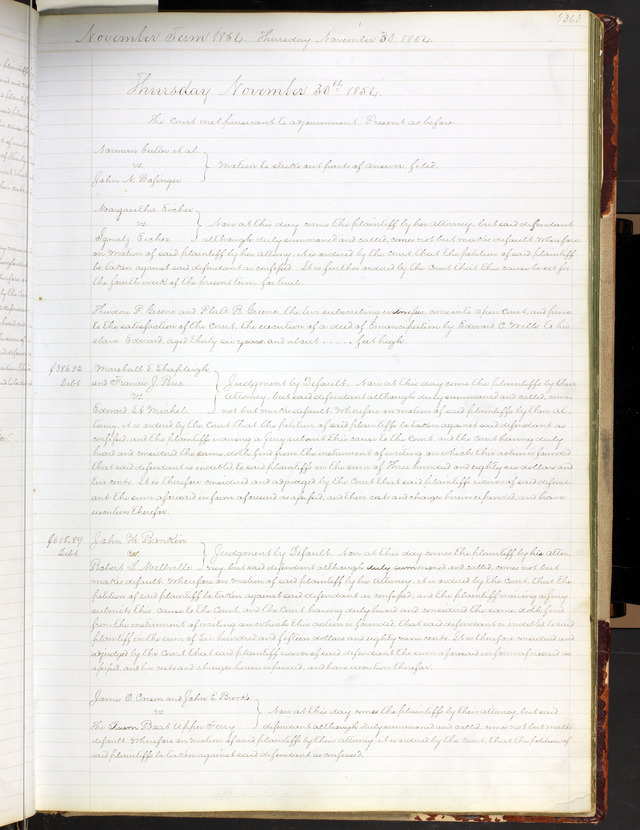 363
November Term 1854. Thursday November 30, 1854.
Thursday November 30th 1854.
The Court met pursuant to adjournment. Present as before
Norman Cutter et al.
vs } Motion to strike out parts of answer, filed.
John N. Bofinger
Margaretha Eicher
vs } Now at this day comes the plaintiff by her Attorney, but said defendant
Ignatz Eicher although duly summoned and called comes not but makes default. Wherefore
on Motion of said plaintiff by her Attorney, it is ordered by the Court that the petition of said plaintiff
be taken against said defendant as confessed. It is further ordered by the Court that this cause be set for
the fourth week of the present term, for trial.
Theodore P. Greene and Platt B. Greene, the two subscribing witnesses, come into Open Court, and prove
to the satisfaction of the Court, the execution of a deed of Emancipation by Edward C. Wells to his
slave Edward, aged thirty six years, and about ..... feet high.
$386.02 Marshall E. Shapleigh
Debt and Francis J. Rue } Judgment by Default. Now at this day come the plaintiffs by their
vs Attorney, but said defendant although duly summoned and called, comes
Edward St Michel not but makes default. Wherefore on motion of said plaintiffs by their At-
torney, it is ordered by the Court that the petition of said plaintiffs be taken against said defendant as
confessed, and the plaintiffs waiving a jury submit this cause to the Court and the Court having duly
heard and considered the same, doth find from the instrument of writing on which this action is founded
that said defendant is indebted to said plaintiffs in the sum of Three hundred and eighty six dollars and
two cents. It is therefore considered and adjudged by the Court that said plaintiffs recover of said defend-
ant the sum aforesaid in form aforesaid as assessed, and their costs and charges herein expended, and have
execution therefor.
$615.89 John H. Rankin
Debt vs } Judgment by Default. Now at this day comes the plaintiff by his attor-
Robert L. Mellville ney, but said defendant although duly summoned and called, comes not but
makes default. Wherefore on Motion of said plaintiff by his Attorney, it is ordered by the Court, that the
petition of said plaintiff be taken against said defendant as confessed, and the plaintiff waiving a jury
submits this cause to the Court and the Court having duly heard and considered the same doth find
from the instrument of writing on which this action is founded, that said defendant is indebted to said
plaintiff in the sum of Six hundred and fifteen dollars and eighty nine cents. It is therefore considered and
adjudged by the Court that said plaintiff recover of said defendant the sum aforesaid in form aforesaid as
assessed, and his costs and charges herein expended, and have execution therefor.
James O. Carson and John E. Brooks
vs } Now at this day come the plaintiffs by their attorney, but said
The Steam Boat Upper Ferry defendant although duly summoned and called comes not but makes
default. Wherefore on motion of said plaintiffs by their attorney it is ordered by the Court, that the petition of
said plaintiffs be taken against said defendant as confessed.